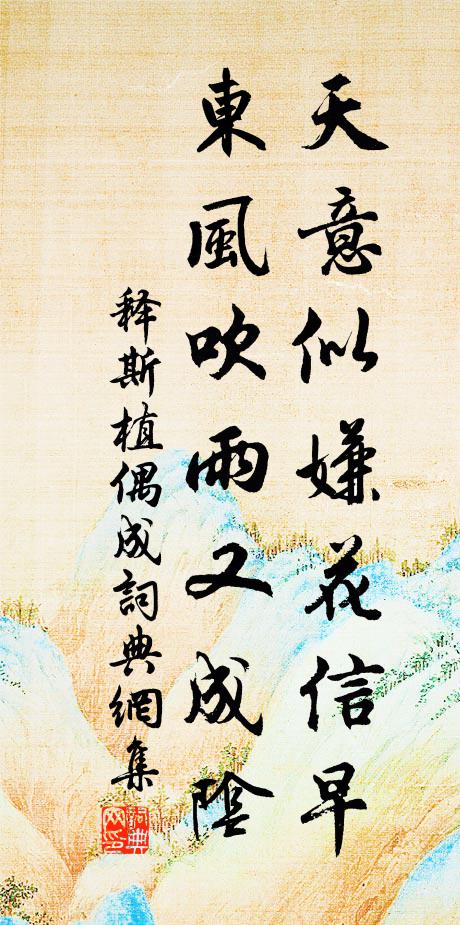 天意似嫌花信早
東風吹雨又成陰
释斯植偶成詞典網集
詞典
网印